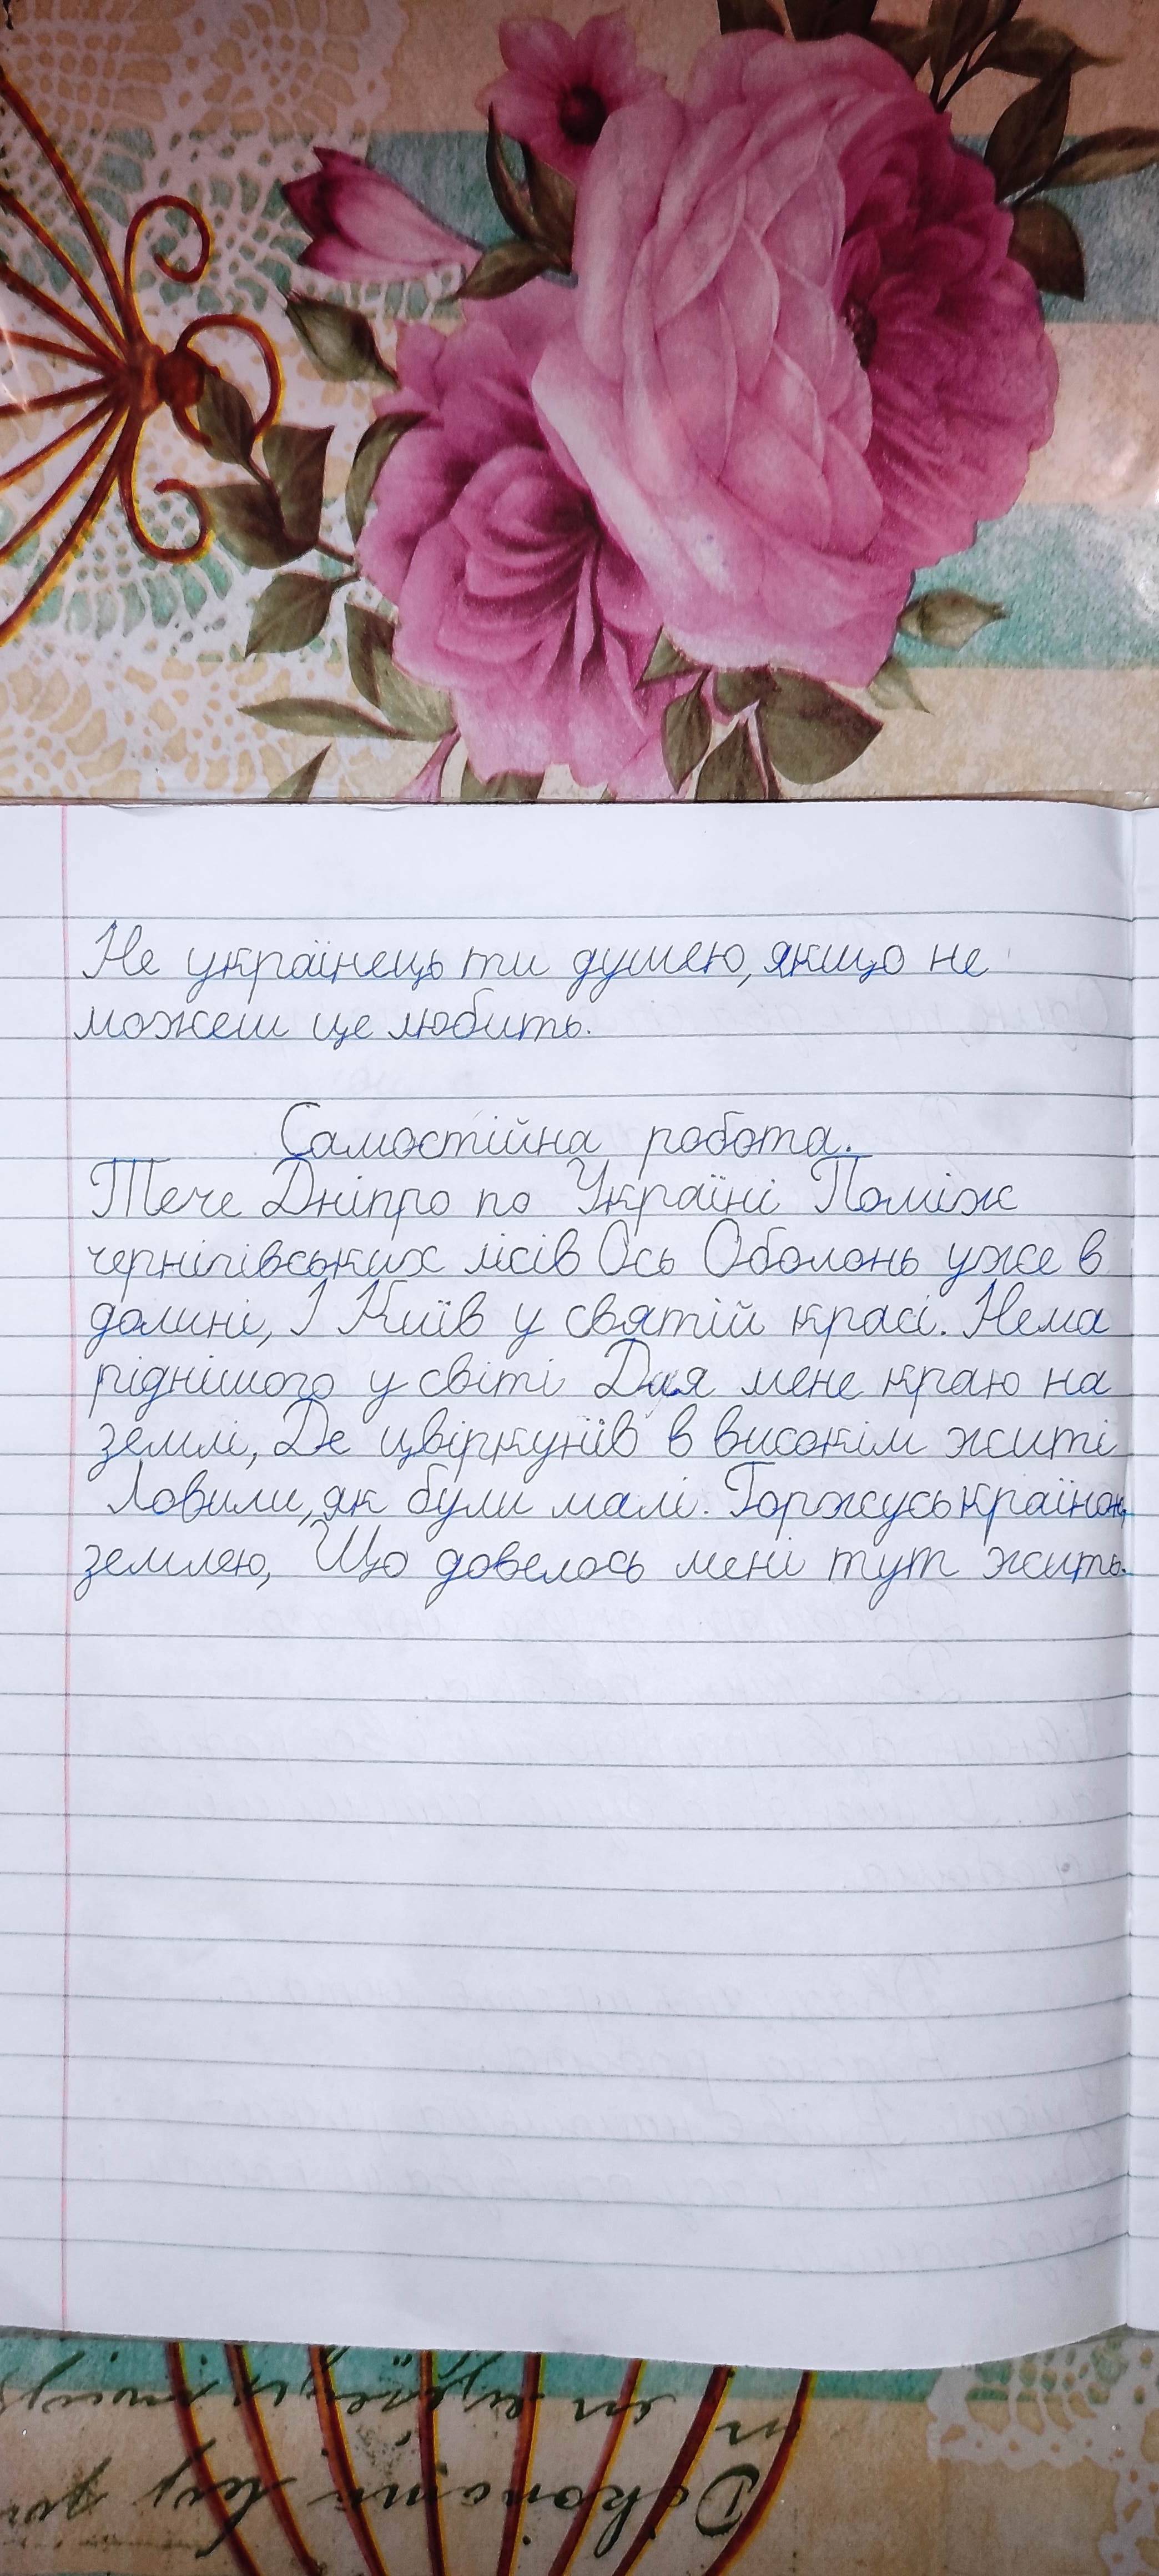 Не українець ти душею, якщо не
можеш це любить.
Самостійна робота.
Тече Дніпро по Україні Поміж
чернігівських лісів Ось Оболонь уже в
долині, І Київ у святій красі. Нема
ріднішого у світі Для мене краю на
землі, Де цвіркунів в високім житі
Ловили, як були малі. Горжусь країною,
землею, Що довелось мені тут жить.